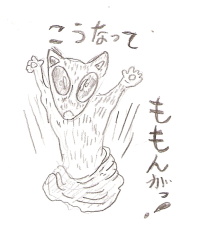 こうなって
ももんがっ!